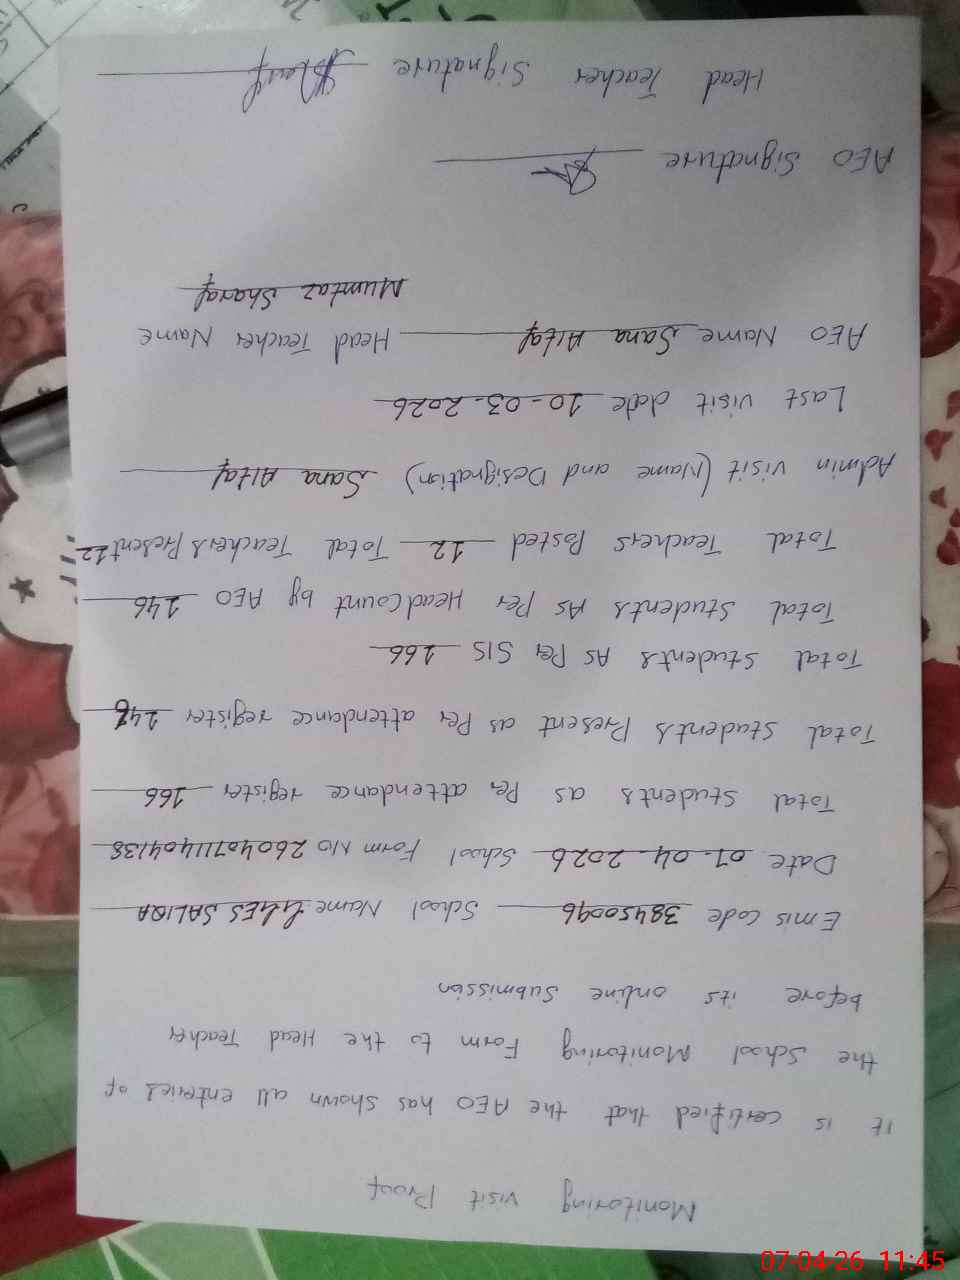 Monitoring visit Proof
it is certified that the AEO has shown all enteries of
the School Monitoring Form to the Head Teacher
before its online Submission
Emis Code 38450096 School Name GGES SALIQA
Date 07-04-2026 School Form No 260407111404138
Total Students as Per attendance register 166
Total Students Present as Per attendance register 146
Total Students As Per SIS 166
Total Students As Per HeadCount by AEO 146
Total Teachers Posted 12 Total Teachers Present 12
Admin visit (Name and Designation) Sana Altaf
Last visit date 10-03-2026
AEO Name Sana Altaf Head Teacher Name
Mumtaz Sharaf
AEO Signature
Head Teacher Signature
07-04-26 11:45